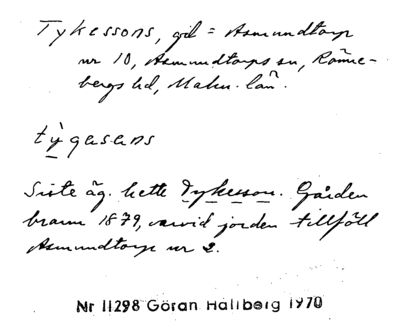 Tykessons, gd = Asmundtorp
nr 10, Asmundtorps sn, Rönne-
bergs hd, Malm. län.
tỳgasans
Siste äg. hette Tykesson. Gården
brann 1879, varvid jorden tillföll
Asmundtorp nr 2.
Nr 11298 Göran Hallberg 1970